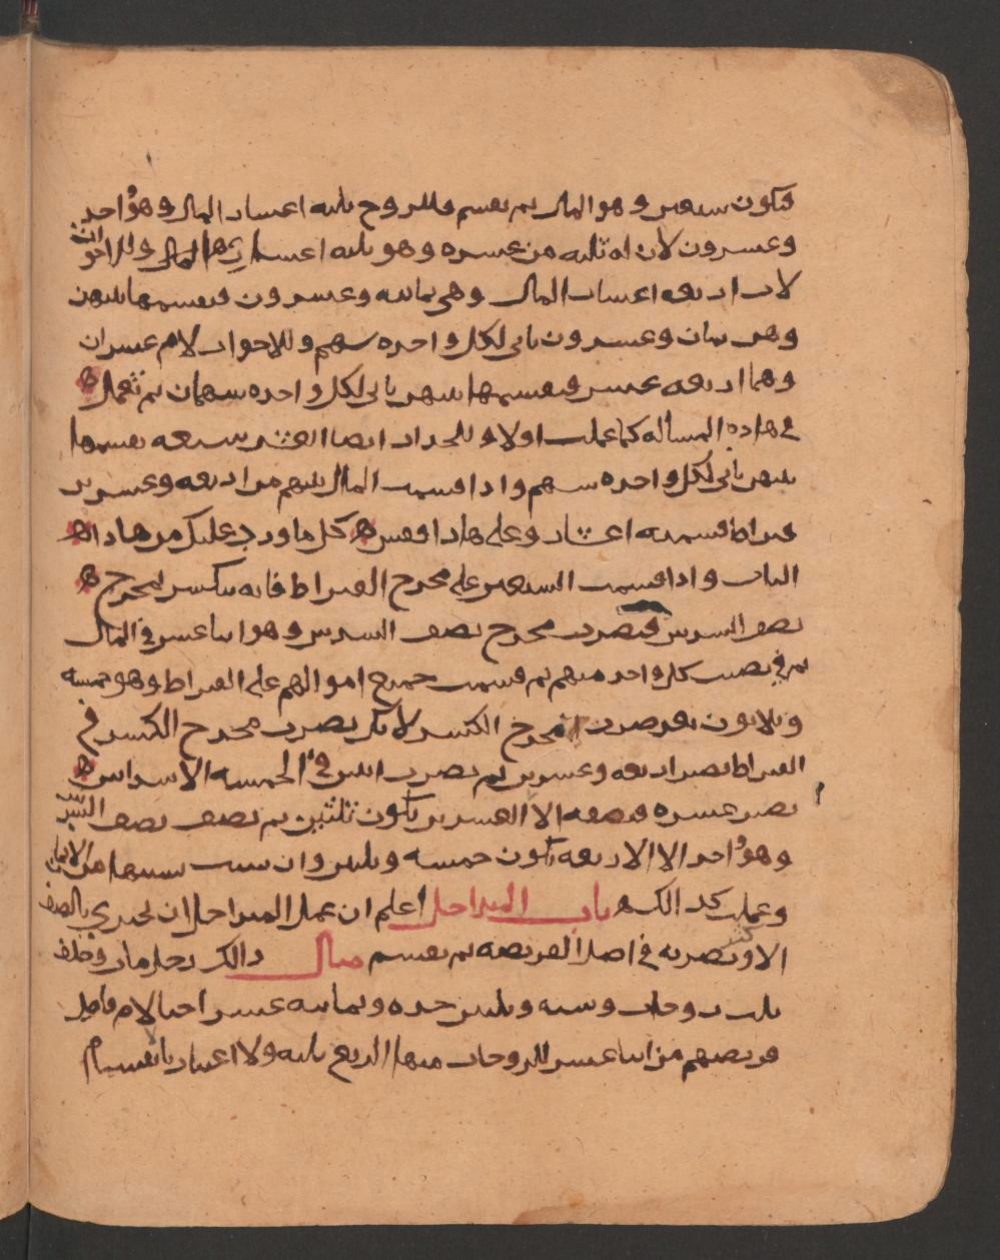 فتكون سبعين وهو المال ثم تقسم فللزوج ثلثه اعشار المال وهو احد
وعشرون لان له ثلثه من عشره وهو ثلثه اعشارها المال وللاخوات
لاب اربعه اعشار المال وهي ثمانيه وعشرون فتقسمها بينهن
وهن ثمان وعشرون ياتي لكل واحده سهم وللاخوات لام عشران
وهما اربعه عشر فتقسمها بينهن ياتي لكل واحده سهمان ثم تعمل
في هاذه المسأله كما عملت اولا وللجدات ايضا العشر سبعه تقسمها
بينهن ياتي لكل واحده سهم واذا قسمت المال بينهم من اربعه وعشرين
قيراط قسمته اعشار وعلى هاذا فقس كل ما ورد عليك من هاذا
الباب واذا قسمت السبعين على مخرج القيراط فانه ينكسر لمخرج
نصف السدس فتضرب مخرج نصف السدس وهو اثنا عشر في المال
ثم في نصيب كل واحد منهم ثم قسمت جميع اموالهم على القيراط وهو خمسه
وثلاثون بعد ضرب مخرج الكسر لانك تضرب مخرج الكسر في
القيراط تصير اربعه وعشرين ثم تضرب اثنين في الخمسه الاسداس
تصير عشره فتضعه الا العشرين تكون ثلثين ثم نصف نصف السدس
وهو احد الا الاربعه تكون خمسه وثلثين وان شيت نسبتها من الاثمان
وعملت كذالك باب المداخل اعلم ان عمل المداخل ان تجتزي بالصنف
الاكثر وتضربه في اصل الفريضه ثم تقسم مثال ذالك رجل مات وخلف
ثلث زوجات وسته وثلثين جده وثمانيه عشر اختا لام فاصل
فريضهم من اثنا عشر للزوجات منها الربع ثلثه ولا اعتبار بانقسام